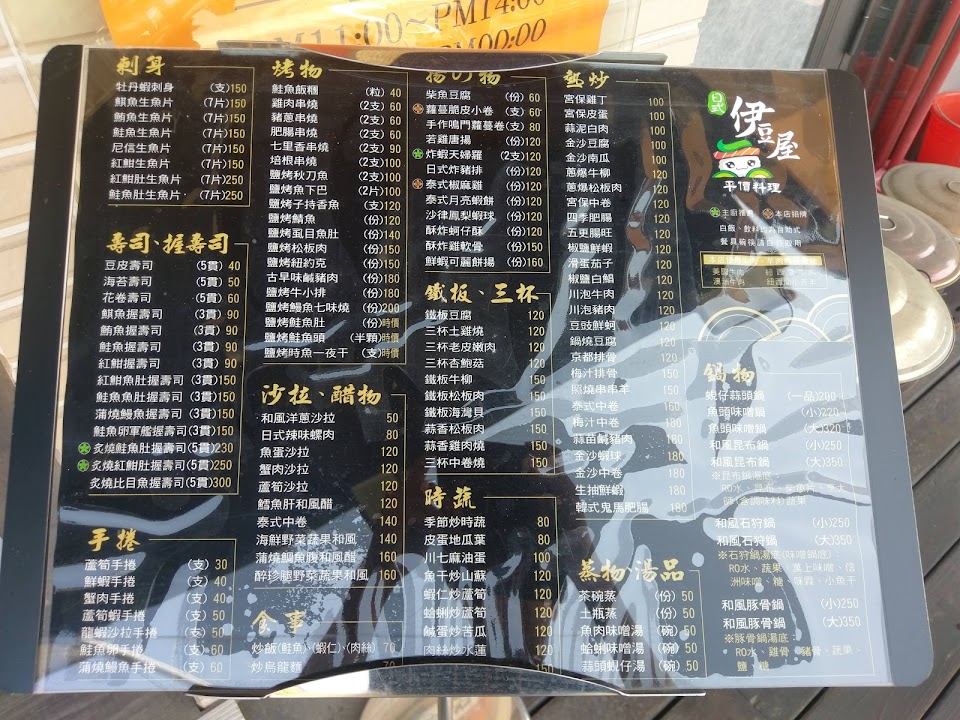 AM11:00~PM14:00
PM00:00
刺身
牡丹蝦刺身 (支)150
鯕魚生魚片 (7片)150
鮪魚生魚片 (7片)150
鮭魚生魚片 (7片)150
尼信生魚片 (7片)150
紅魽生魚片 (7片)150
紅魽肚生魚片 (7片)250
鮭魚肚生魚片 (7片)250
壽司、握壽司
豆皮壽司 (5貫) 40
海苔壽司 (5貫) 50
花卷壽司 (5貫) 60
鯕魚握壽司 (3貫) 90
鮪魚握壽司 (3貫) 90
鮭魚握壽司 (3貫) 90
紅魽握壽司 (3貫) 90
紅魽魚肚握壽司 (3貫)150
鮭魚魚肚握壽司 (3貫)150
蒲燒鰻魚握壽司 (3貫)150
鮭魚卵軍艦握壽司(3貫)150
炙燒鮭魚肚握壽司(5貫)230
炙燒紅魽肚握壽司(5貫)250
炙燒比目魚握壽司(5貫)300
手捲
蘆筍手捲 (支) 30
鮮蝦手捲 (支) 40
蟹肉手捲 (支) 40
蘆筍蝦手捲 (支) 50
龍蝦沙拉手捲 (支) 50
鮭魚卵手捲 (支) 60
蒲燒鰻魚手捲 (支) 60
烤物
鮭魚飯糰 (粒) 40
雞肉串燒 (2支) 60
豬蔥串燒 (2支) 60
肥腸串燒 (2支) 60
七里香串燒 (2支) 90
培根串燒 (2支)100
鹽烤秋刀魚 (2支)100
鹽烤魚下巴 (2片)100
鹽烤子持香魚 (支)120
鹽烤鯖魚 (份)120
鹽烤虱目魚肚 (份)140
鹽烤松板肉 (份)150
鹽烤紐約克 (份)150
古早味鹹豬肉 (份)180
鹽烤牛小排 (份)180
鹽烤鰻魚七味燒 (份)200
鹽烤鮭魚肚 (份)時價
鹽烤鮭魚頭 (半顆)時價
鹽烤時魚一夜干 (支)時價
沙拉、醋物
和風洋蔥沙拉 50
日式辣味螺肉 80
魚蛋沙拉 120
蟹肉沙拉 120
蘆筍沙拉 120
鱈魚肝和風醋 120
泰式中卷 140
海鮮野菜蔬果和風 140
蒲燒鯛魚腹和風醋 160
醉珍腿野菜蔬果和風 160
食事
炒飯(鮭魚)、(蝦仁)、(肉絲) 70
炒烏龍麵 70
揚の物
柴魚豆腐 (份) 60
蘿蔓脆皮小卷 (支) 60
手作鳴門蘿蔓卷(支) 80
若雞唐揚 (份)120
炸蝦天婦羅 (2支)120
日式炸豬排 (份)120
泰式椒麻雞 (份)120
泰式月亮蝦餅 (份)120
沙律鳳梨蝦球 (份)120
酥炸蚵仔酥 (份)120
酥炸雞軟骨 (份)150
鮮蝦可麗餅揚 (份)160
鐵板、三杯
鐵板豆腐 120
三杯土雞燒 120
三杯老皮嫩肉 120
三杯杏鮑菇 120
鐵板牛柳 150
鐵板松板肉 150
鐵板海灣貝 150
蒜香松板肉 150
蒜香雞肉燒 150
三杯中卷燒 150
時蔬
季節炒時蔬 80
皮蛋地瓜葉 80
川七麻油蛋 100
魚干炒山蘇 120
蝦仁炒蘆筍 120
蛤蜊炒蘆筍 120
鹹蛋炒苦瓜 120
肉絲炒水蓮 120
150
熱炒
宮保雞丁 100
宮保皮蛋 100
蒜泥白肉 100
金沙豆腐 100
金沙南瓜 100
蔥爆牛柳 120
蔥爆松板肉 120
宮保中卷 120
四季肥腸 120
五更腸旺 120
椒鹽鮮蝦 120
滑蛋茄子 120
椒鹽白鯧 120
川泡牛肉 120
川泡豬肉 120
豆豉鮮蚵 120
鍋燒豆腐 120
京都排骨 150
梅汁排骨 150
照燒串串羊 150
泰式中卷 160
梅汁中卷 180
蒜苗鹹豬肉 180
金沙蝦球 180
金沙中卷 180
生抽鮮蝦 180
韓式鬼馬肥腸 180
蒸物/湯品
茶碗蒸 (份) 50
土瓶蒸 (份) 50
魚肉味噌湯 (碗) 50
蛤蜊味噌湯 (碗) 50
蒜頭蜆仔湯 (碗) 50
日式
伊豆屋
平價料理
主廚推薦 本店招牌
白飯、飲料均為自助式
餐具碗筷請自行取用
鍋物
蜆仔蒜頭鍋 (一品)200
魚頭味噌鍋 (小)220
魚頭味噌鍋 (大)320
和風昆布鍋 (小)250
和風昆布鍋 (大)350
※昆布鍋湯底:
和風石狩鍋 (小)250
和風石狩鍋 (大)350
※石狩鍋湯底(味噌鍋底):
RO水、蔬果、萬上味噌、信
洲味噌、糖、味霖、小魚干
和風豚骨鍋 (小)250
和風豚骨鍋 (大)350
※豚骨鍋湯底:
RO水、雞骨、豬骨、蔬果、
鹽、糖